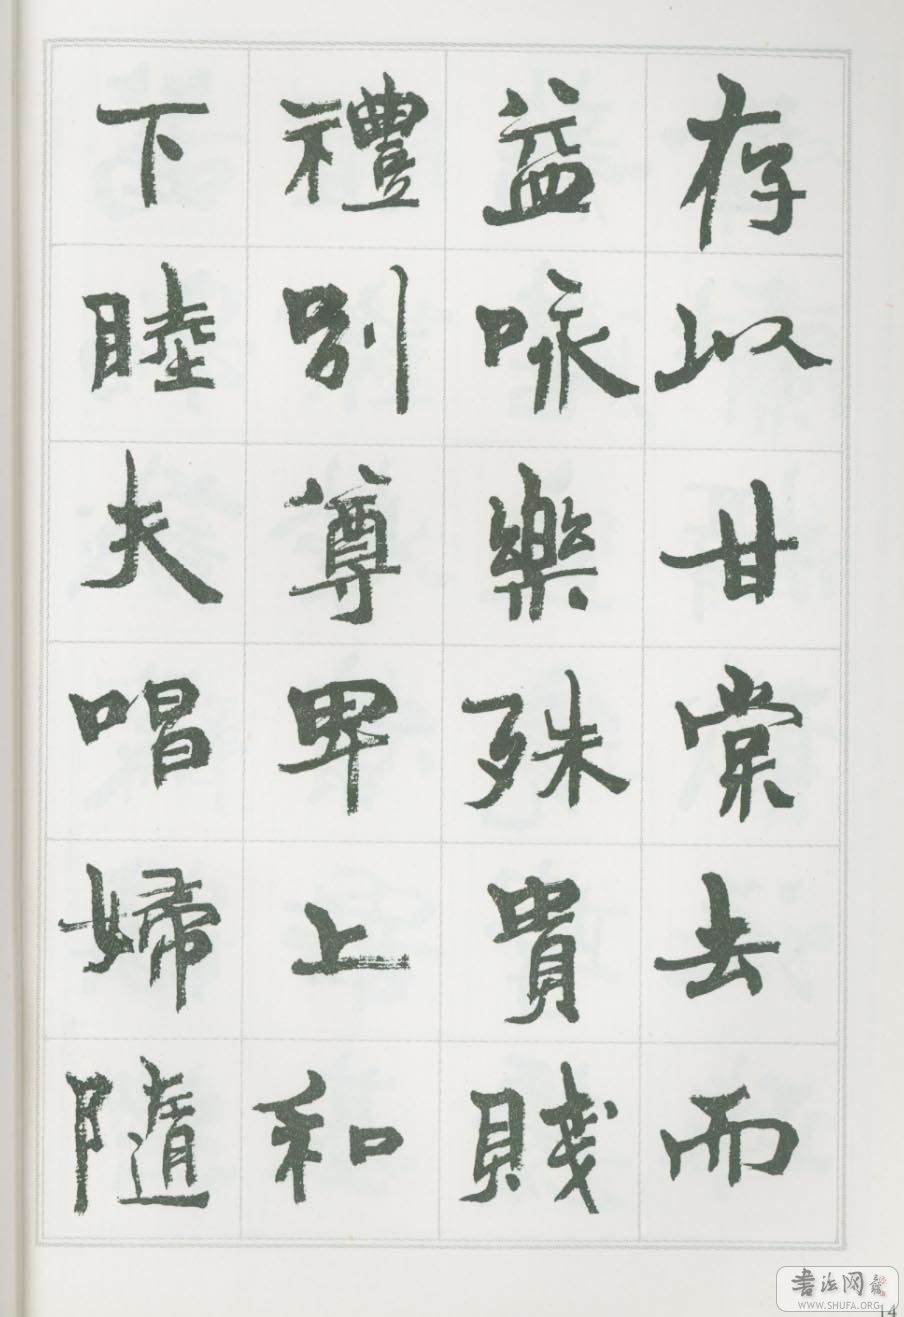 存以甘棠去而
益咏樂殊貴賤
禮別尊卑上和
下睦夫唱婦隨
書法网
WWW.SHUFA.ORG
14